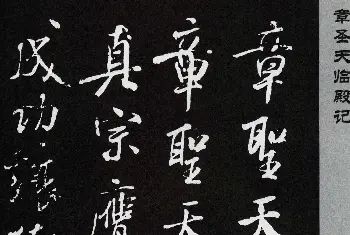 章圣天临殿记
章聖天
章聖天
真宗膺
成功